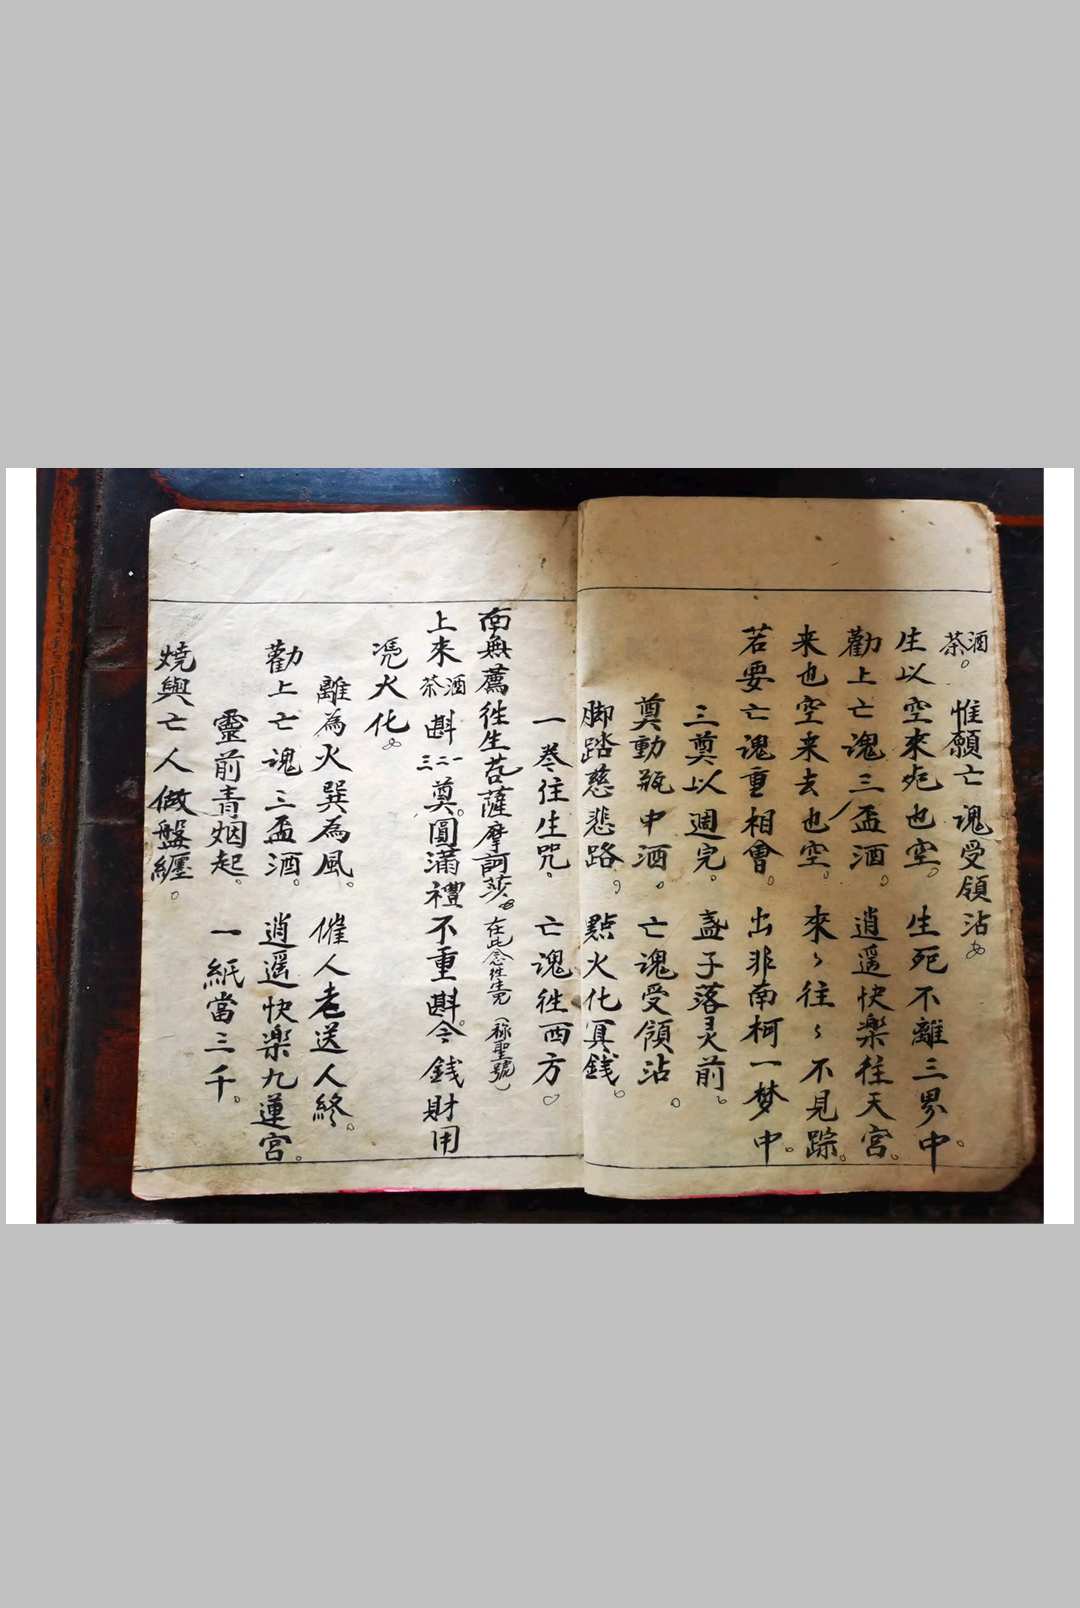 酒茶。惟願亡魂受領沾。
生以空來死也空。生死不離三界中。
勸上亡魂三盃酒。逍遥快楽往天宮。
来也空来去也空。來〻往〻不見踪。
若要亡魂重相會。出非南柯一梦中。
三奠以週完。盏子落灵前。
奠動瓶中酒。亡魂受領沾。
脚踏慈悲路。點火化冥錢。
一卷往生咒。亡魂徃西方。
南無薦徃生菩薩摩訶莎。在此念徃生咒(称聖號)
上來酒茶斟一二三奠。圓滿禮不重斟。今錢財用
凴火化。
離為火巽為風。催人老送人終。
勸上亡魂三盃酒。逍遥快楽九蓮宮。
靈前青烟起。一紙當三千。
燒與亡人做盤纏。